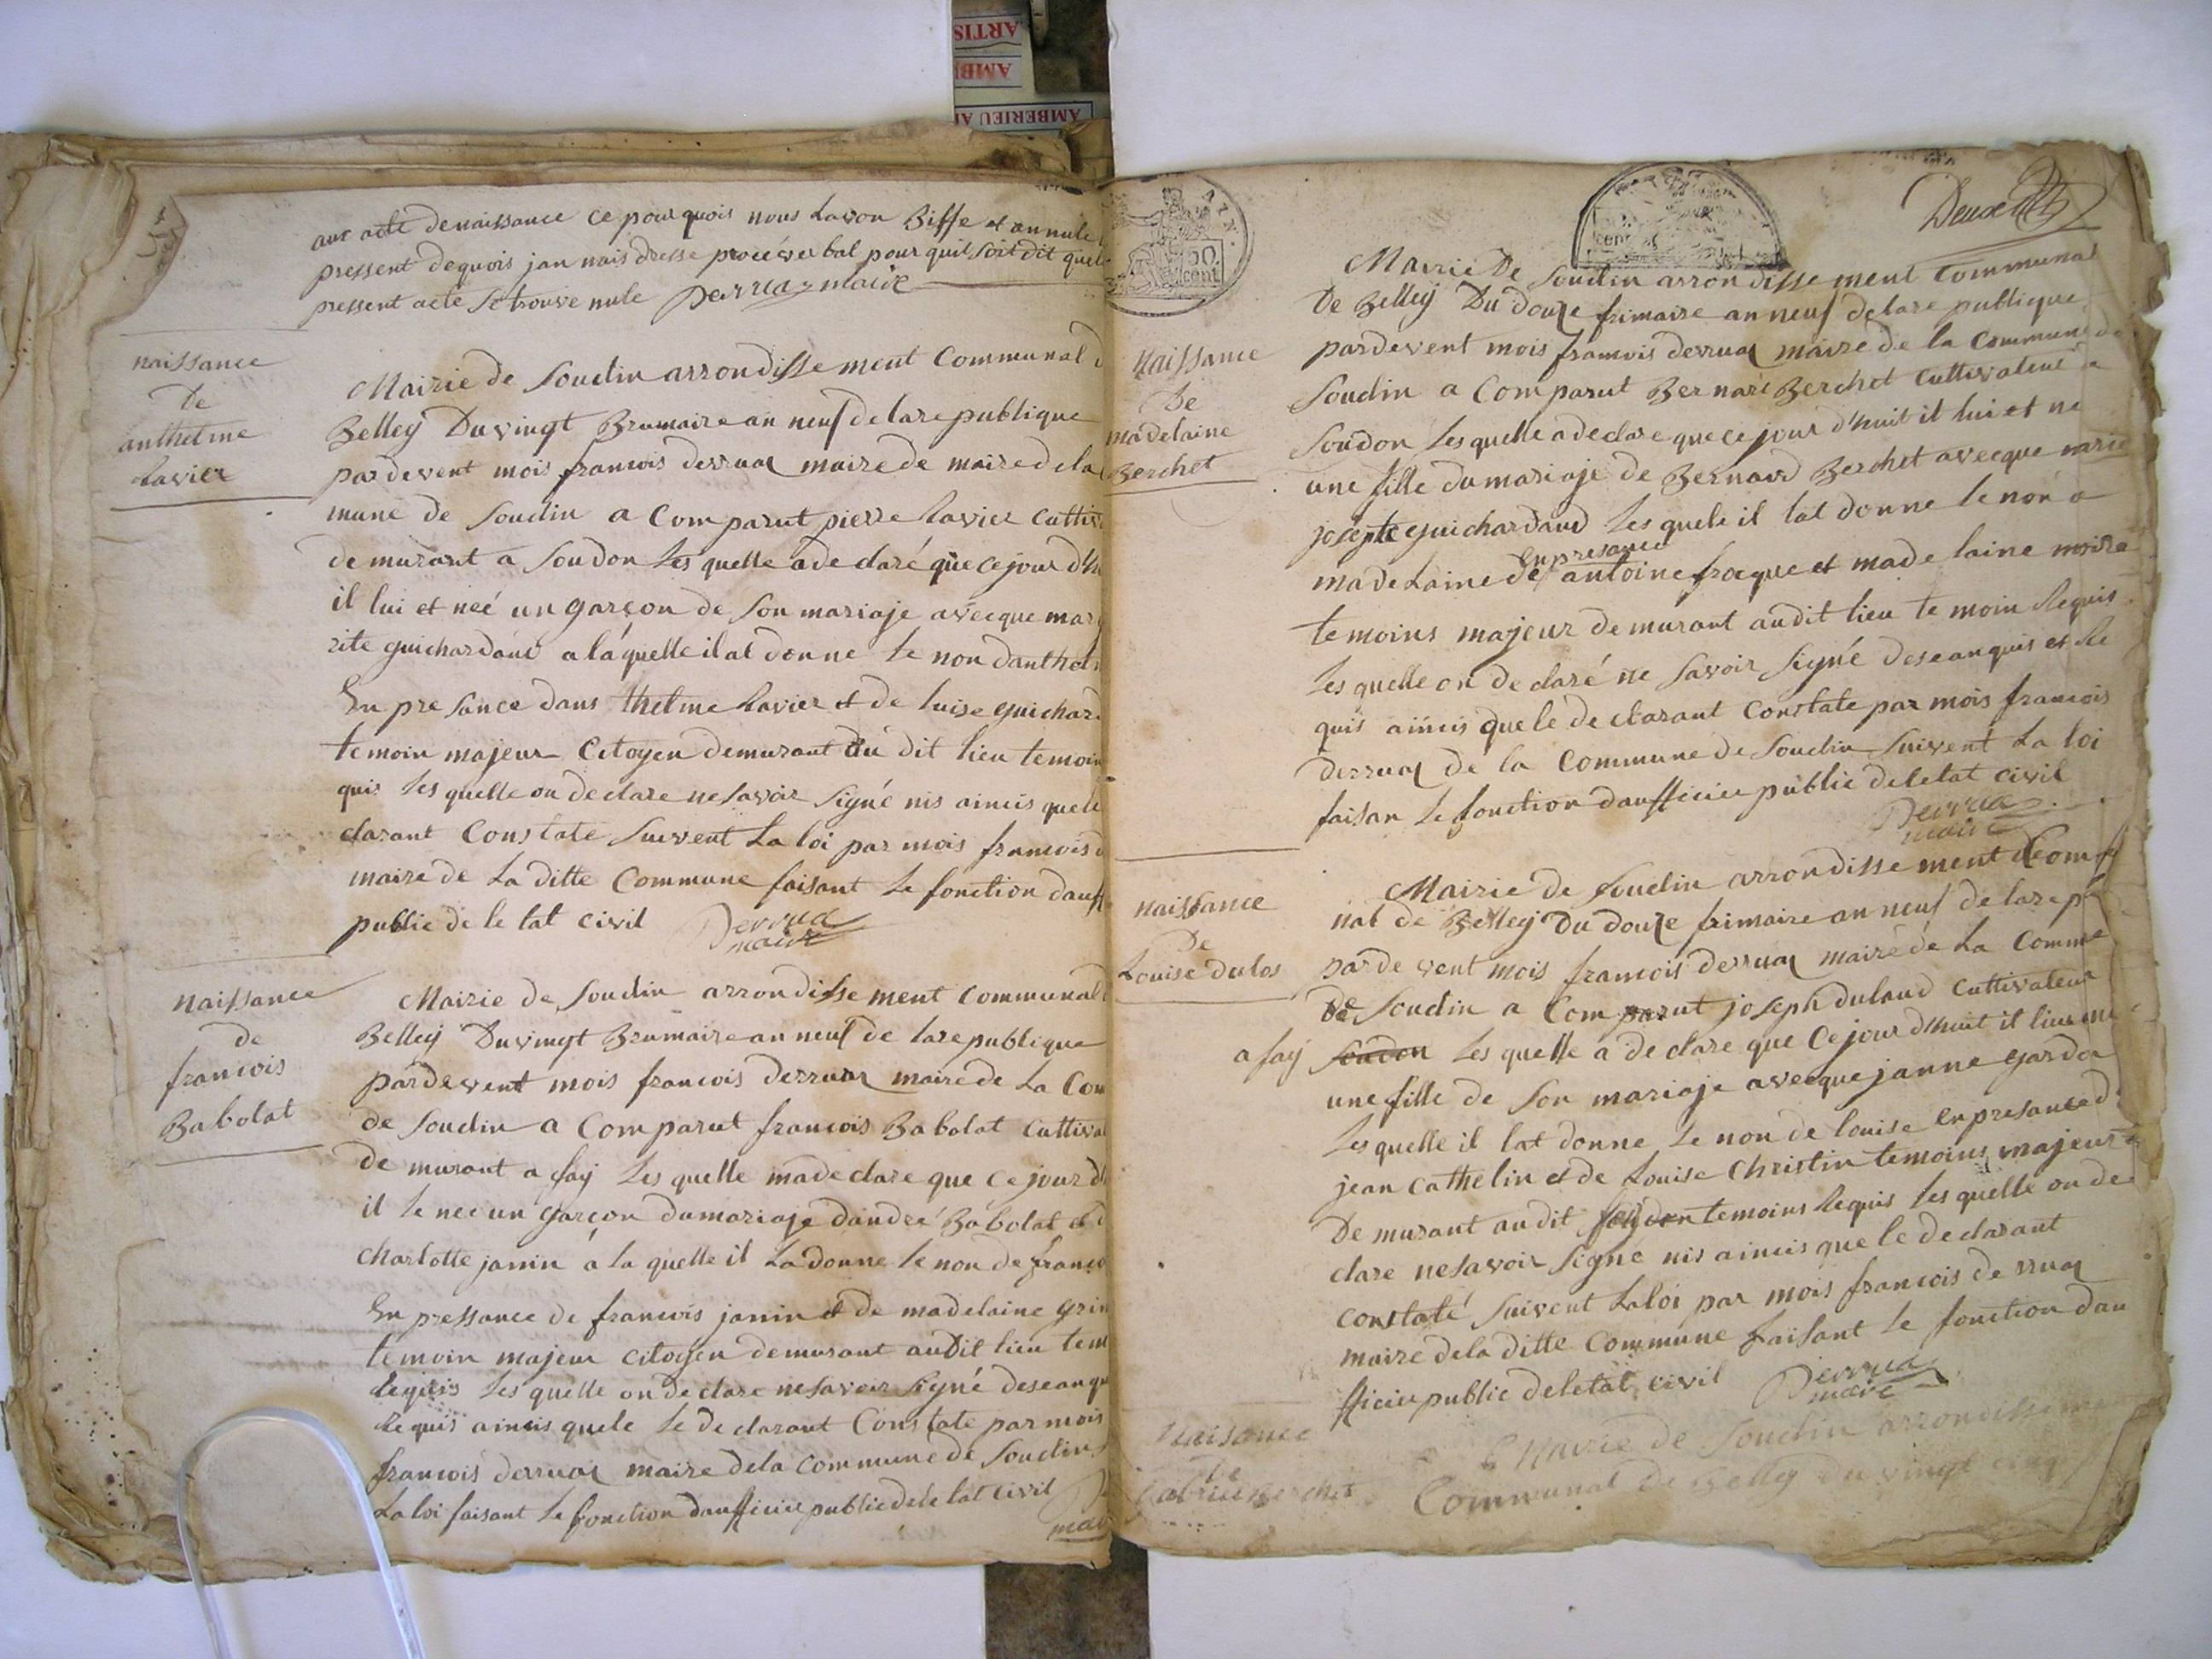 ARTIS
AMB
AMBERIEU A
aux acte denaissance ce pourquois nous lavon Biffe et annule
pressent dequois jan nais dresse procéverbal pour quil soit dit quele
pressent acte se trouve nule Derrua maire
naissance
De
anthelme
Ravier
Mairie de Soudin arrondisse ment Communal d
Belley Du vingt Brumaire an neuf de lare publique
par devent mois francois derruaz maire de maire de la
mune de Soudin a Comparut pierre Ravier Cultiv
de murant a Soudon Les quelle a de claré que ce jour d'h
il lui et neé un garçon de son mariaje avecque mar
rite guichardaud a la quelle il at donne le non danthel
En pre sance dans thelme Ravier et de luise guichar
temoin majeur Citoyen demurant du dit lieu temoin
quis Les quelle on declare ne savoir signé nis aincis quele
clarant Constate suivent La loi par mois francois d
maire de La ditte Commune faisant Le fonction dauff
public de le tat civil Derrua
maire
naissance
de
francois
Babolat
Mairie de Soudin arrondisse ment communal
Belley Du vingt Brumaire an neuf de lare publique
par devent mois francois derruaz maire de La Com
de Soudin a Comparut francois Babolat Cultiva
de murant a fay Les quelle ma declare que ce jour d
il le neé un garçon du mariaje dandré Babolat et d
charlotte janin a la quelle il La donne le non de franco
En pressance de francois janin et de madelaine grin
temoin majeur citoyen demurant au dit lieu tem
Requis Les quelle on declare ne savoir signé deseanqu
Requis aincis quele le de clarant Constate par mois
francois derruaz maire dela commune de Soudin
La loi faisant Le fonction daufficier public de le tat civil
mair
50
cent
cent
naissance
De
madelaine
Berchet
Mairie De Soudin arrondisse ment Communal
De Belley Du douze frimaire an neuf delare publique
pardevent mois francois derruaz maire de la Commune de
Soudin a Comparut Bernard Berchet Cultivateur a
Soudon Les quelle a declare que ce jour d'huit il lui et ne
une fille du mariaje de Bernard Berchet avecque marie
josepte guichardaud Les quele il lat donne le non a
en presance
madelaine de antoine frocque et made laine moire
temoins majeur demurant audit lieu te moin Requis
Les quelle on declaré ne savoir signé deseanquis et Re
quis aincis quele de clarant Constate par mois francois
derruaz de la Commune de Soudin suivent La loi
faisan Le fonction daufficier public deletat civil
Derrua
maire
naissance
De
Louise dulos
Mairie de Soudin arrondisse ment Commu
nal de Belley Du douze frimaire an neuf de lare p
par de vent mois francois derruaz maire de La Comme
de Soudin a Comparut joseph dulaud Cultivateur
a fay Soudon Les quelle a declare que ce jour d'huit il lui
une fille de son mariaje avecque janne garda
Les quelle il lat donne le non de louise en presance d
jean cathelin et de Louise Christin temoins majeur
De murant au dit fay temoins Requis Les quelle on de
clare ne savoir signé nis aincis que le declarant
constaté suivent La loi par mois francois derruaz
maire dela ditte Commune faisant le fonction dau
fficier public deletat civil Derrua
maire
naisance
de
Berchet
Mairie de Soudin arrondisseme
Communal de Belley du vingt cinq